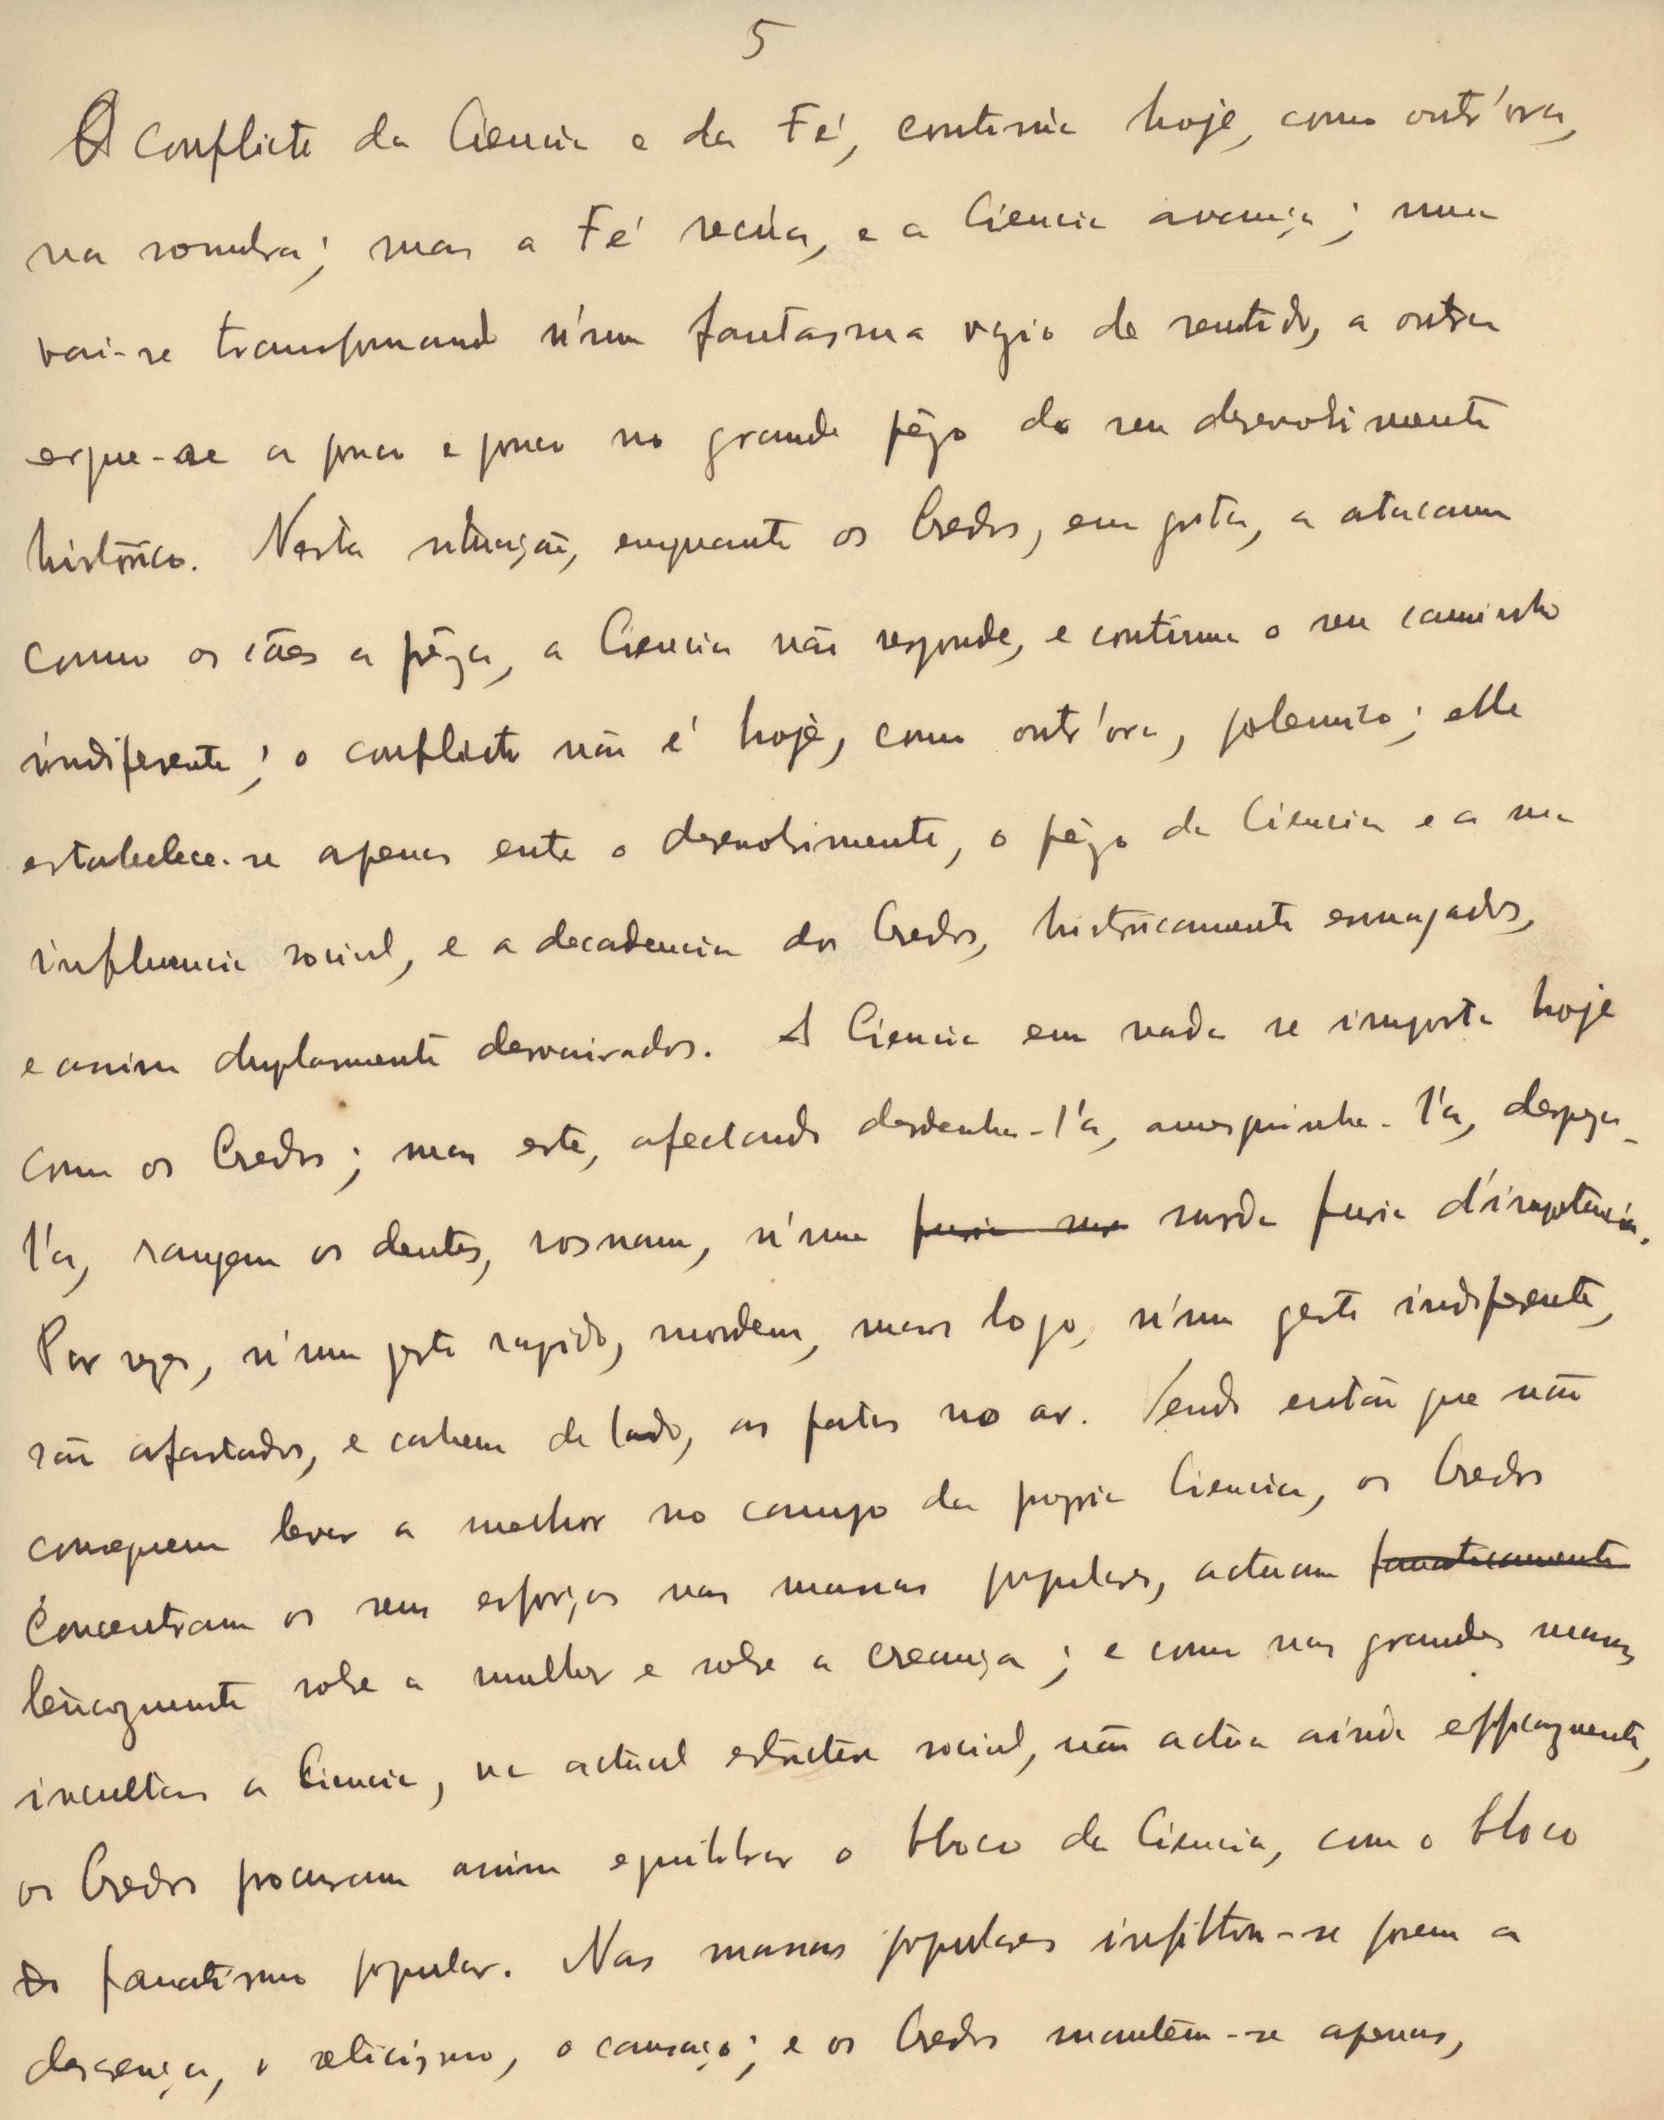 5
O conflicto da Ciencia e da Fé, continúa hoje, como outr'ora,
na sombra; mas a Fé recúa, e a Ciencia avança; uma
vai-se transformando n'um fantasma vazio de sentido, a outra
ergue-se a pouco e pouco no grande fôgo do seu desenvolvimento
histórico. Nesta situação, enquanto os Credos, em grita, a atacam
como os cães a prêza, a Ciencia não responde, e continua o seu caminho
indiferente; o conflicto não é hoje, como outr'ora, polemico; elle
estabelece-se apenas entre o desenvolvimento, o fôgo da Ciencia e a sua
influencia social, e a decadencia dos Credos, historicamente esmagados,
e assim duplamente desvairados. A Ciencia em nada se importa hoje
com os Credos; mas este, afectando desdenha-l'a, amesquinha-l'a, despreza-
l'a, rangem os dentes, rosnam, n'uma furia surda furia d'impotencia.
Por vezes, n'um gesto rapido, mordem, mas logo, n'um gesto indiferente,
são afastados, e cahem de lado, as patas no ar. Vendo então que não
conseguem levar a melhor no campo da propria Ciencia, os Credos
concentram os seus esforços nas massas populares, actuam fanaticamente
sobre a mulher e sobre a creança; e como nas grandes massas
incultas a Ciencia, na actual estructura social, não actúa ainda efficazmente,
os Credos procuram assim equilibrar o bloco da Ciencia, com o bloco
do fanatismo popular. Nas massas populares infiltra-se porem a
descrença, o scepticismo, o cansaço; e os Credos mantêm-se apenas,